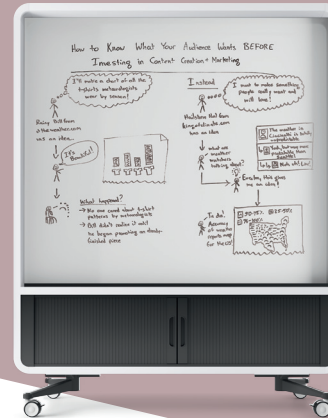 How to Know What Your Audience Wants BEFORE
Investing in Content Creation + Marketing
I'll make a chart of all the
t-shirts meteorologists
wear by season!
Rainy Bill from
weather.com
has an idea...
It's
Beautiful!
What happened?
→ No one cared about t-shirt
patterns by meteorologists
→ Bill didn't realize it until
he began promoting an already-
finished piece
Instead
I want to make something
people really want and
will love!
Hailstorm Hal from
has an idea
→ what are
weather
talking about?
The weather in
is totally
Yeah, but way more
than
Seattle!
Eureka, this gives
me an idea!
To Do:
Accuracy
of weather
reports map
for the US!
50-75%
25-50%
75-100%